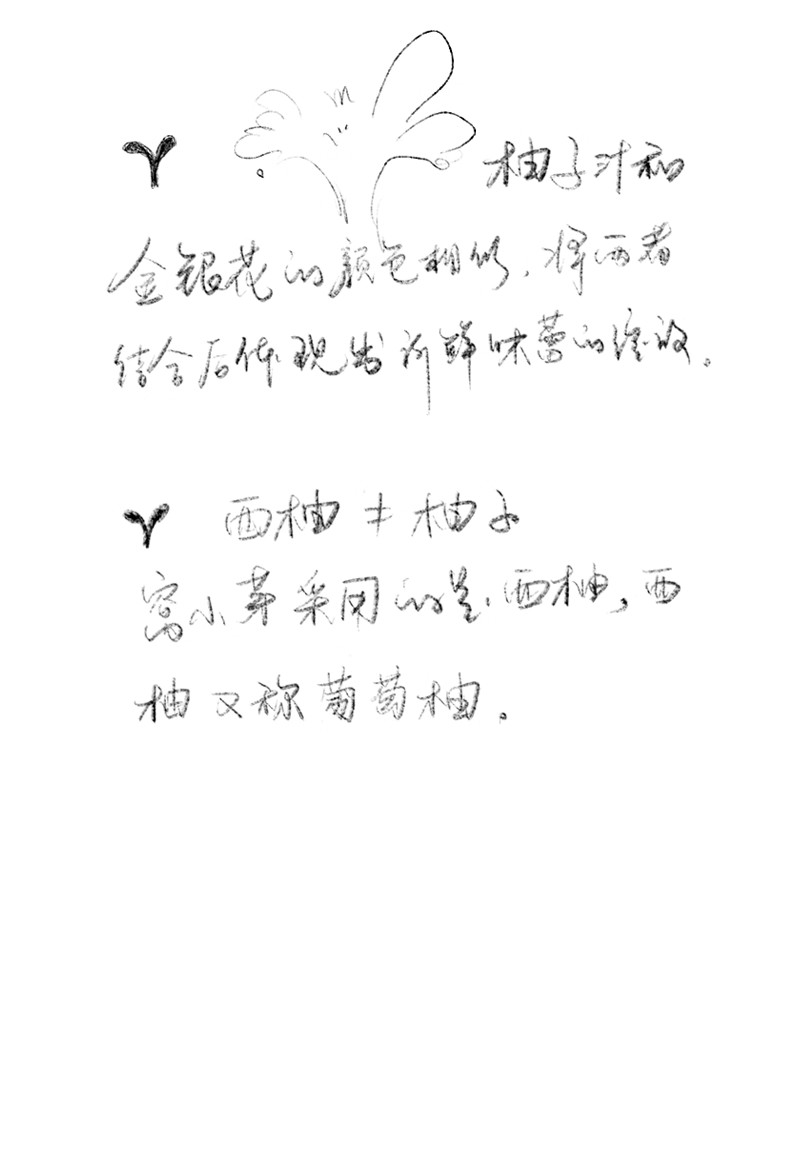 柚子汁和
金银花的颜色相似，将两者
结合后体现出新鲜味蕾的绽放。
西柚≠柚子
窝小芽采用的是西柚，西
柚又称葡萄柚。